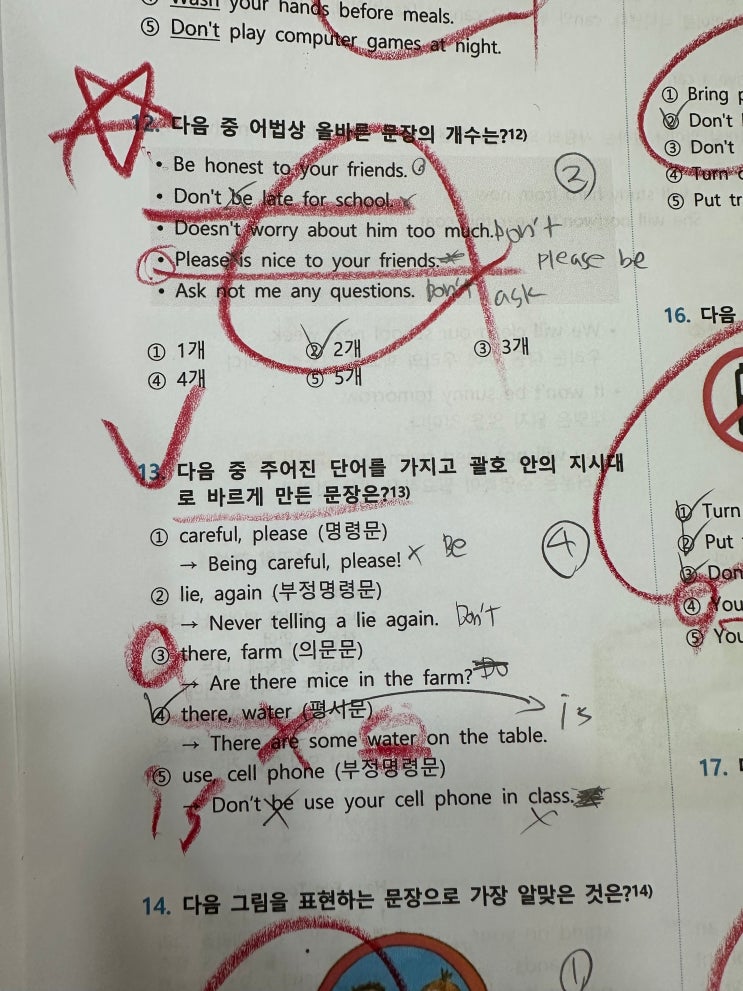 ① Wash your hands before meals.
⑤ Don't play computer games at night.
12. 다음 중 어법상 올바른 문장의 개수는?12)
• Be honest to your friends.
②
• Don't be late for school. x
• Doesn't worry about him too much. Don't
• Please is nice to your friends. please be
• Ask not me any questions. Don't ask
① 1개 ② 2개 ③ 3개
④ 4개 ⑤ 5개
13. 다음 중 주어진 단어를 가지고 괄호 안의 지시대
로 바르게 만든 문장은?13)
① careful, please (명령문)
→ Being careful, please! x Be
④
② lie, again (부정명령문)
→ Never telling a lie again. Don't
③ there, farm (의문문)
→ Are there mice in the farm? Do
④ there, water (평서문) is
→ There are some water on the table.
⑤ use, cell phone (부정명령문)
→ Don't be use your cell phone in class.
x
is
14. 다음 그림을 표현하는 문장으로 가장 알맞은 것은?14)
①
① Bring
② Don't
③ Don't
④ Turn
⑤ Put
16. 다음
① Turn
② Put
③ Don
④ You
⑤ You
17.